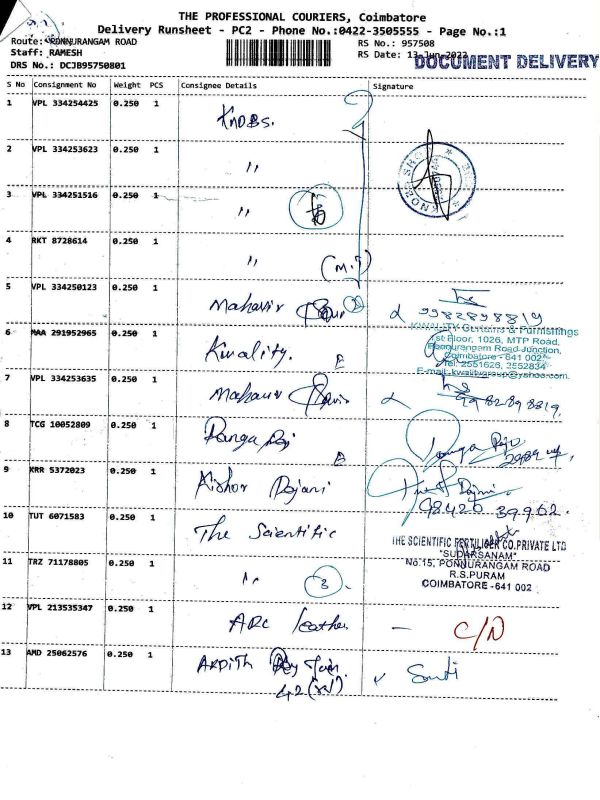 THE PROFESSIONAL COURIERS, Coimbatore
Delivery Runsheet - PC2 - Phone No.:0422-3505555 - Page No.:1
Route: PONNURANGAM ROAD
RS No.: 957508
Staff: RAMESH
RS Date: 13-Jun-2023
DOCUMENT DELIVERY
DRS No.: DCJB95750801
S No Consignment No Weight PCS Consignee Details Signature
1 VPL 334254425 0.250 1 KNOBS.
2 VPL 334253623 0.250 1 "
3 VPL 334251516 0.250 1 "
4 RKT 8728614 0.250 1 "
5 VPL 334250123 0.250 1 Mahavir
9982898819
6 MAA 291952965 0.250 1 Kwality.
KWALITY Curtains & Furnishings
1st Floor, 1026, MTP Road,
Ponnurangam Road Junction,
Coimbatore - 641 002
Tel: 2551626, 2552834
E-mail: kwalitygroup@yahoo.com
7 VPL 334253635 0.250 1 Mahavir
9982898819.
8 TCG 10052809 0.250 1 Ranga Raj
Ranga Raju
9 KRR 5372023 0.250 1 Kishor Rajani
98420 39962.
10 TUT 6071583 0.250 1 The Scientific
THE SCIENTIFIC FERTILISER CO.PRIVATE LTD
"SUDARSANAM"
No.15, PONNURANGAM ROAD
R.S.PURAM
COIMBATORE - 641 002
11 TRZ 71178805 0.250 1 " 3
12 VPL 213535347 0.250 1 ARC leather - C/N
13 AMD 25062576 0.250 1